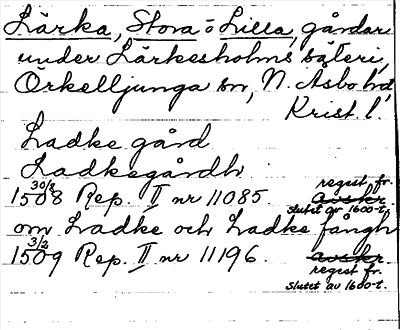 Lärka, Stora o Lilla, gårdar
under Lärkesholms säteri,
Örkelljunga sn, N. Åsbo hd,
Krist. l.
Ladke gård
Ladkegårdh
1508 30/8 Rep. II nr 11085. avskr. regest fr. slutet av 1600-t.
om Ladke och Ladke fångh
1509 3/2 Rep. II nr 11196. avskr. regest fr. slutet av 1600-t.